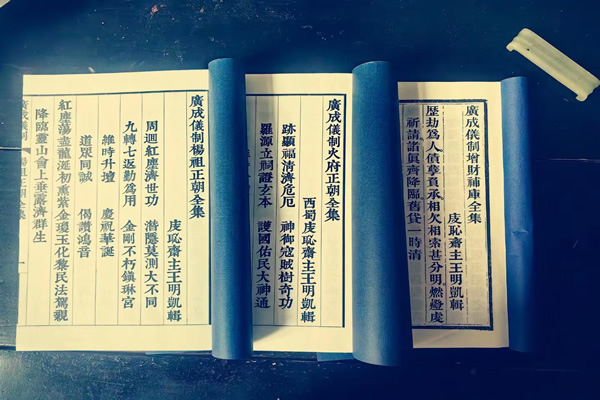 廣成儀制增財補庫全集
虔恥齋主王明凱輯
歷劫為人債孽負承相欠相索甚分明燃燈虔
祈請諸真齊降臨舊貸一時清
廣成儀制火府正朝全集
西蜀虔恥齋主王明凱輯
跡顯福清濟危厄 神御寇賊樹奇功
羅源立祠證玄本 護國佑民大神通
廣成儀制楊祖正朝全集
虔恥齋主王明凱輯
周迴紅塵濟世功 潛隱莫測大不同
九轉七返勤為用 金剛不朽鎮琳宮
維時升壇 慶祝華誕
道眾同誠 偈讚鴻音
紅塵蕩盡龍涎初熏紫金瓊玉化黎民法駕親
降臨靈山會上垂慈濟群生
廣成儀制 楊祖正朝全集 一